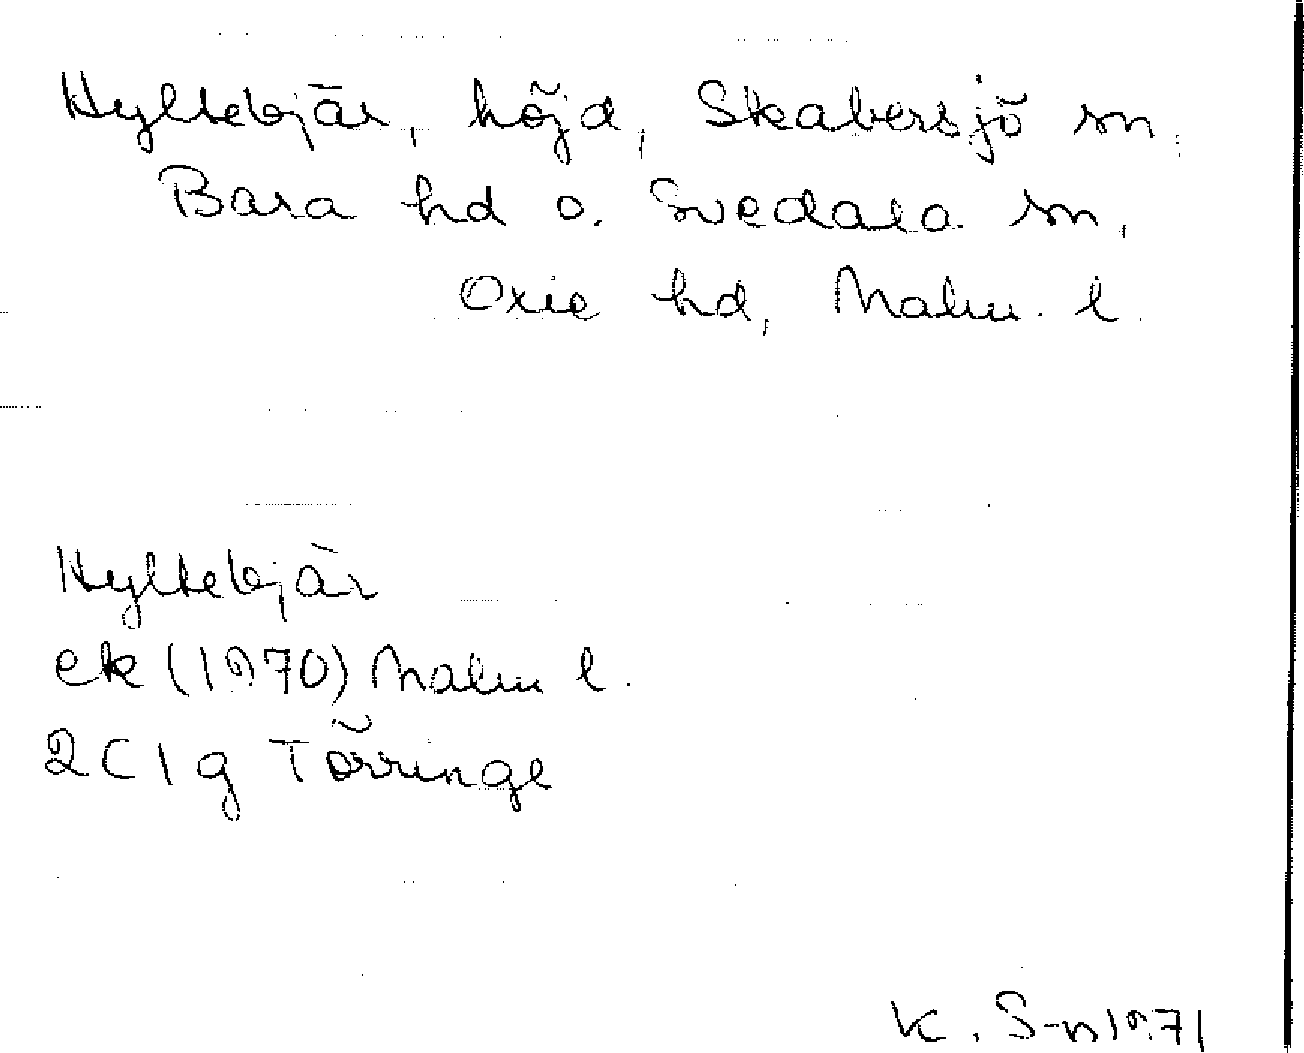 Hyltebjär, höjd, Skabersjö sn,
Bara hd o. Svedala sn,
Oxie hd, Malm. l.
Hyltebjär
ek (1970) Malm l.
2C1g Törringe
K. S-n 1971